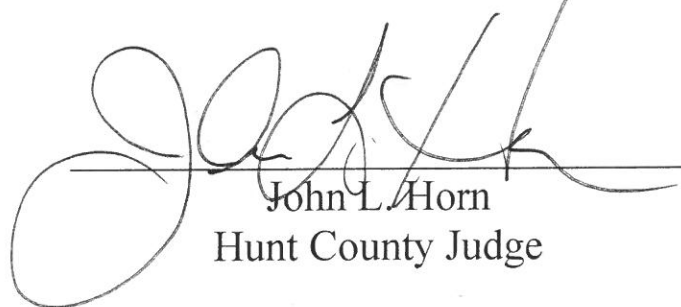 John L. Horn
Hunt County Judge